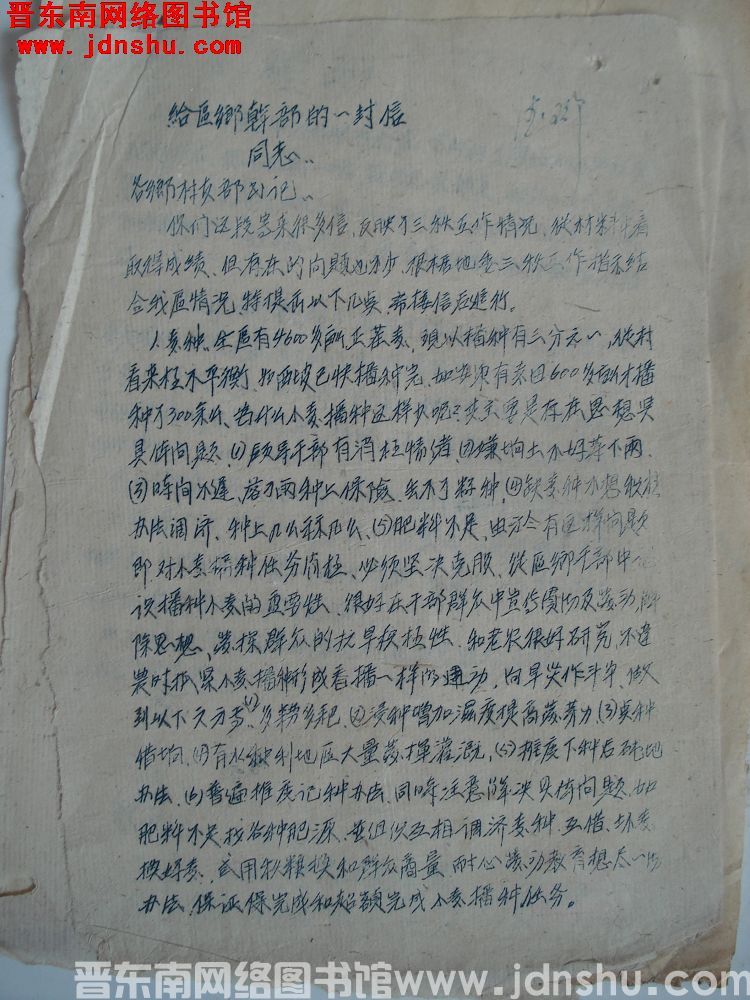 晋东南网络图书馆
www.jdnshu.com
给区鄉幹部的一封信
同志：
各鄉村支部书记：
你们这段寄来很多信，反映了三秋工作情况，从材料看
取得成绩，但存在的问题也不少，根据地委三秋工作指示结
合我区情况，特提出以下几点，希接信后进行。
1、麦种、全区有4600多亩正茬麦，现以播种有三分之一，从村
看来极不平衡，如西坡已快播种完，有麦田600多亩才播
种了300来亩，为什么小麦播种这样
具体问题，(1)领导干部有消极情绪，(2)嫌垧土不好等下雨，
(3)时间不遲，落了雨种上保险，丢不了籽种，(4)缺麦种不想积极
办法调济，种上几么算几么，(5)肥料不足，由于今有这样问题
即对小麦播种任务消极，必须坚决克服，从区鄉干部中
识播种小麦的重要性，很好在干部群众中宣传贯彻及发动，解
除思想，发揮群众的抗旱积极性，和老农很好研究，不違
農时抓紧小麦播种形成看播一样的運动，向旱災作斗争，做
到以下六方面(1)多耢多耙，(2)浸种增加湿度提高發芽力(3)点种
借垧，(4)有水利地区大量發揮灌溉，(5)推廣下种后砘地
办法，(6)普遍推廣记种办法，同时注意解决具体问题，如
肥料不足找各种肥源，並组织互相调济麦种，互借，坏麦
换好麦，或用秋粮换和群众商量，耐心發动教育想尽一切
办法，保证保完成和超额完成小麦播种任务。
晋东南网络图书馆www.jdnshu.com